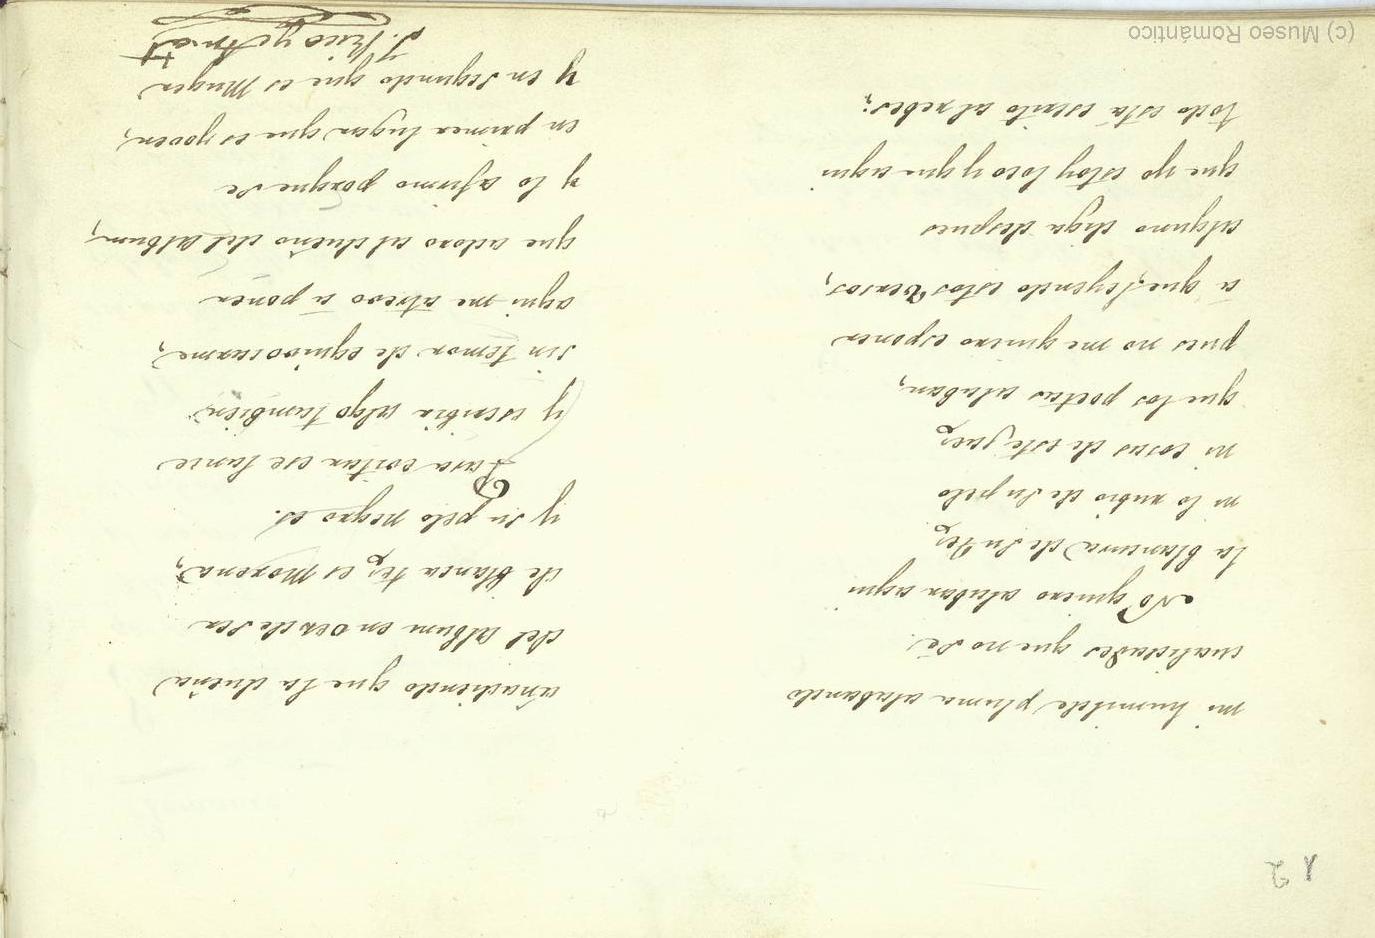 mi humilde pluma alabando
cualidades que no sé.
No quiero alabar aqui
la blancura de su tez
ni lo rubio de su pelo
ni cosas de este jaez
que los poetas alaban,
pues no me quiero esponer
á que, leyendo estos versos,
alguno diga despues
que yo estoy loco y que aqui
todo está escrito al rebes;
añadiendo que la dueña
del album en vez de ser
de blanca tez es morena,
y su pelo negro es.
Para evitar ese lance
y escribir algo tambien
sin temor de equivocarme,
aqui me atrevo á poner
que adoro al dueño del album,
y lo afirmo porque sé
en primer lugar que es joven,
y en segundo que es muger
J. Rico y Amat
12
(c) Museo Romántico